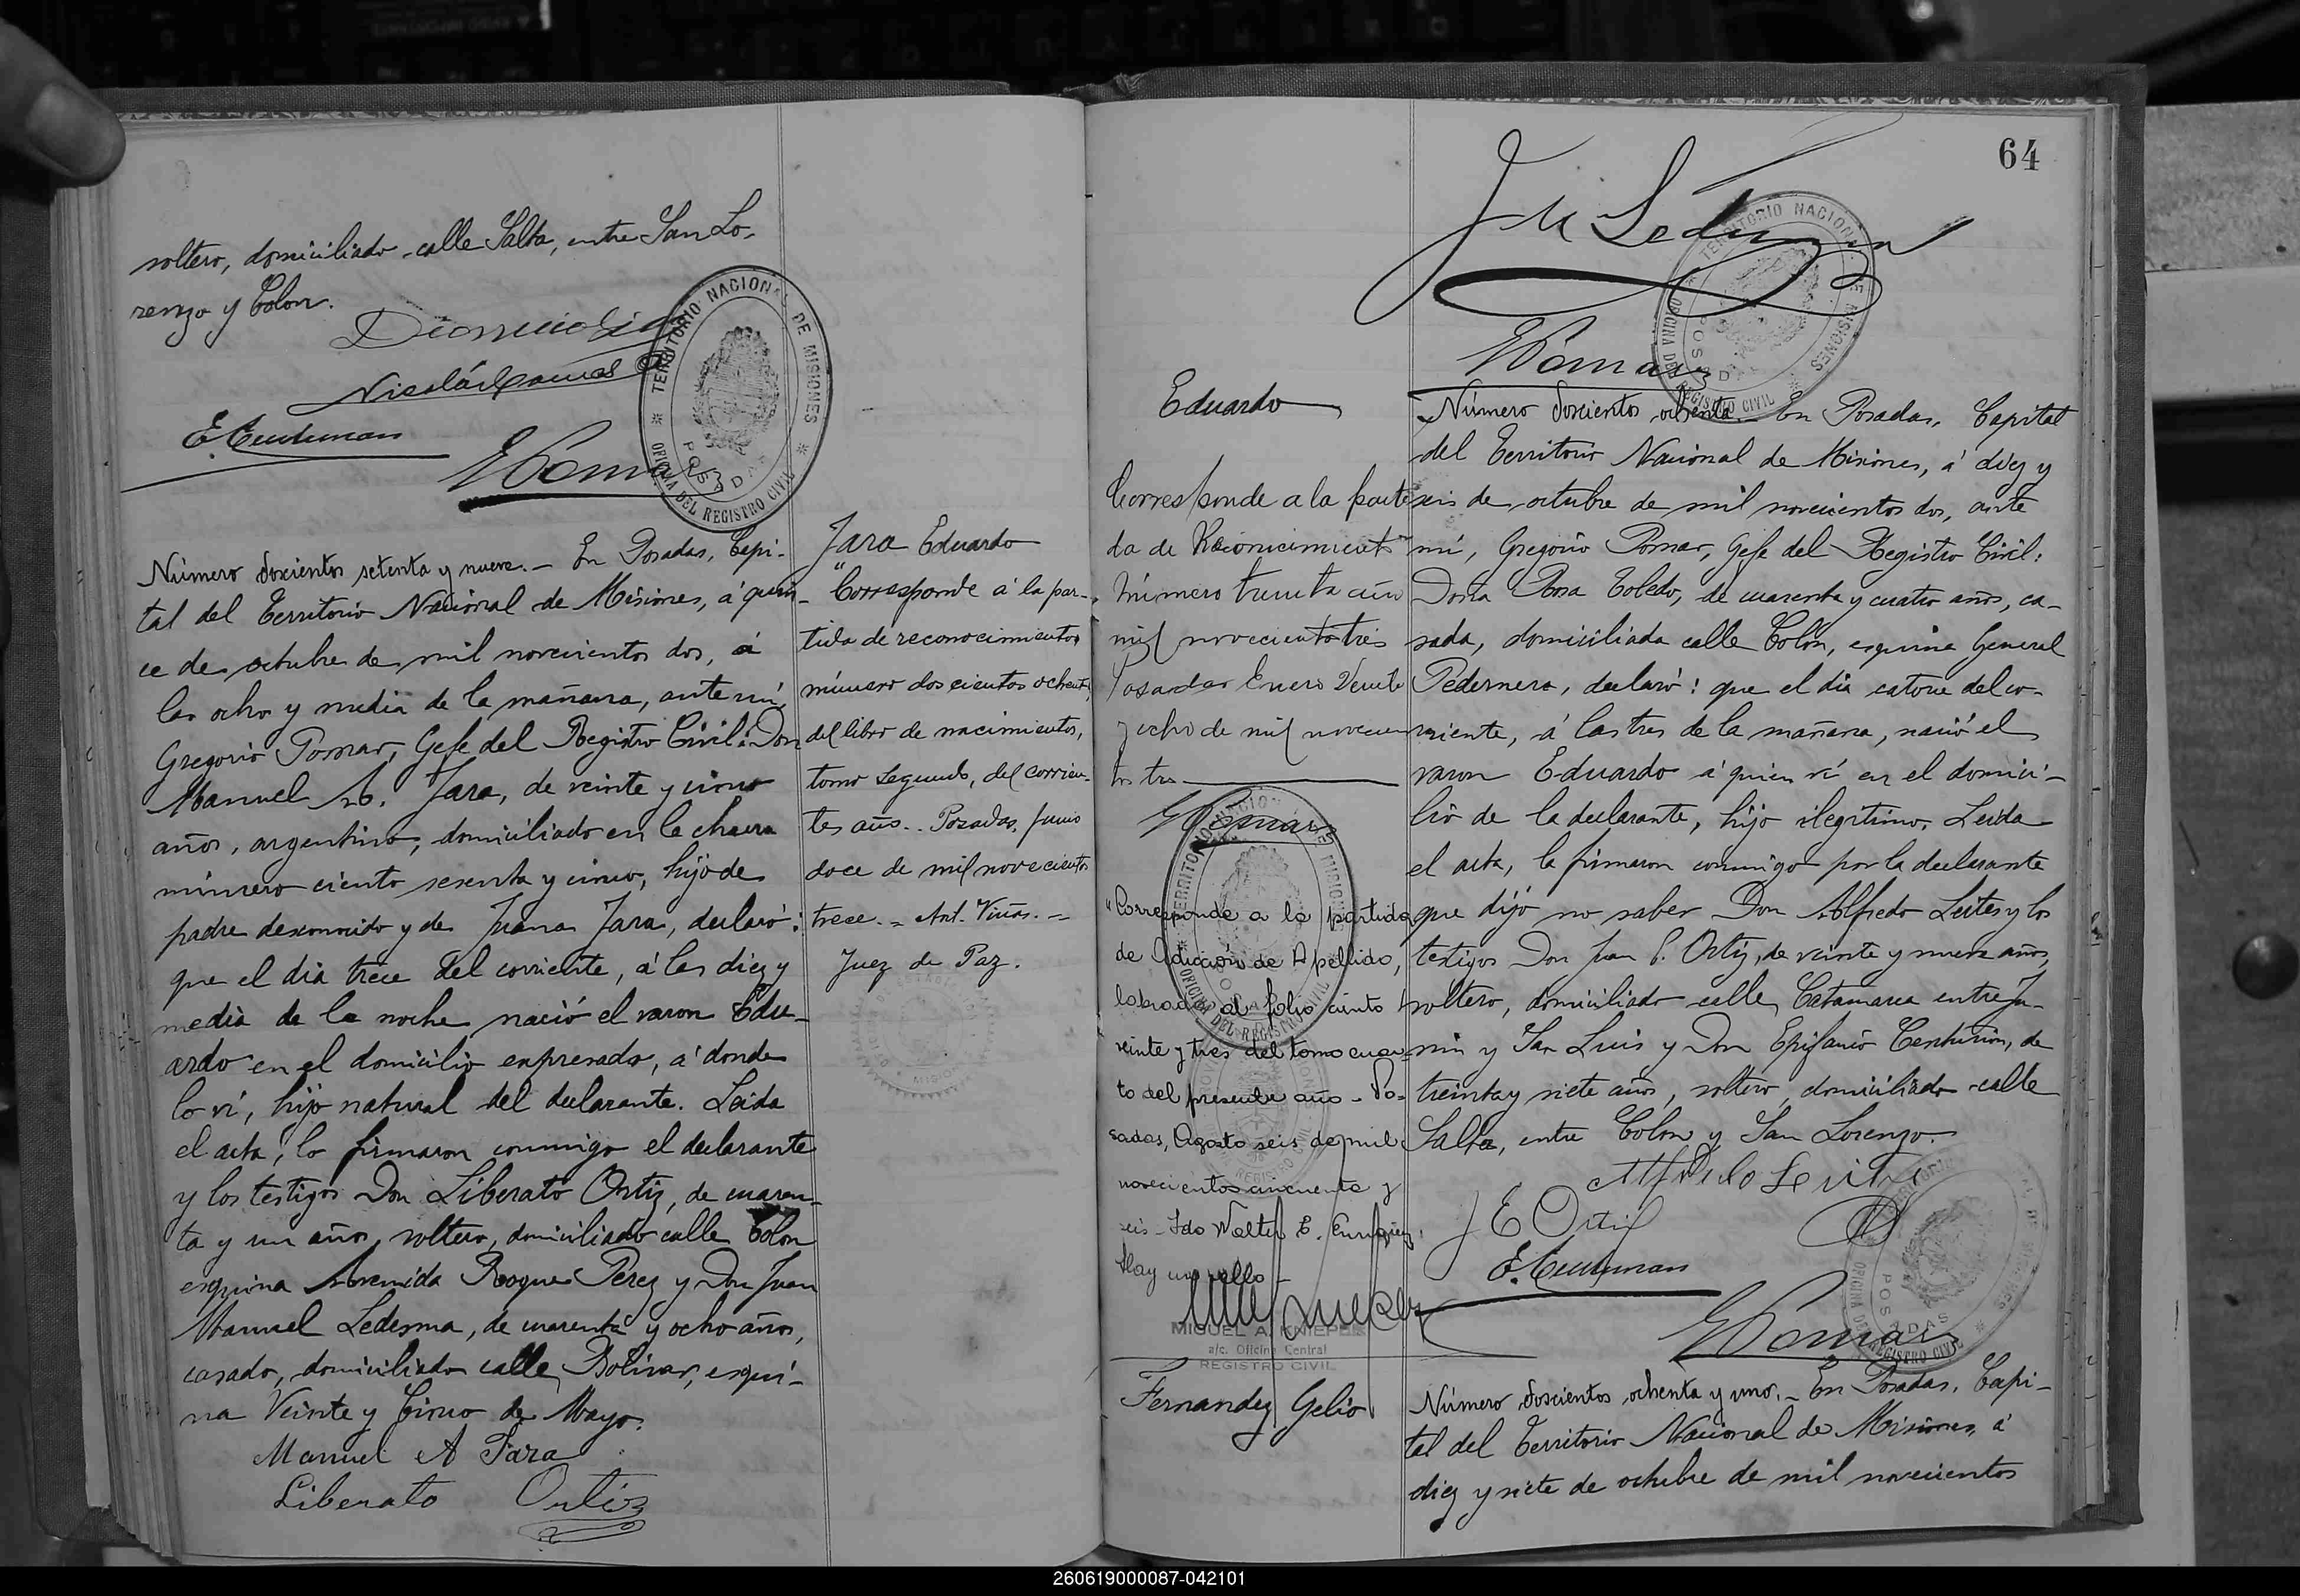 soltero, domiciliado calle Salta, entre San Lo-
renzo y Colon.
E. Centurion
GPomar
TERRITORIO NACIONAL DE MISIONES
OFICINA DEL REGISTRO CIVIL
POSADAS
Número doscientos setenta y nueve.- En Posadas, Capi-
tal del Territorio Nacional de Misiones, á quin-
ce de octubre de mil novecientos dos, á
las ocho y media de la mañana, ante mí,
Gregorio Pomar, Gefe del Registro Civil: Don
Manuel A. Jara, de veinte y cinco
años, argentino, domiciliado en la chacra
número ciento sesenta y cinco, hijo de
padre desconocido y de Juana Jara, declaró:
que el dia trece del corriente, á las diez y
media de la noche nació el varon Edu-
ardo en el domicilio expresado, á donde
lo ví, hijo natural del declarante. Leida
el acta, lo firmaron conmigo el declarante
y los testigos Don Liberato Ortiz, de cuaren-
ta y un años, soltero, domiciliado calle Colon
esquina Avenida Roque Perez y Don Juan
Manuel Ledesma, de cuarenta y ocho años,
casado, domiciliado calle Bolivar, esqui-
na Veinte y Cinco de Mayo.
Manuel A Jara
Liberato Ortiz
Jara Eduardo
"Corresponde á la par-
tida de reconocimiento
número dos cientos ochenta,
del libro de nacimientos,
tomo segundo, del corrien-
tes año.. Posadas, Junio
doce de mil novecientos
trece. - Ant. Viñas. -
Juez de Paz.
64
J M Ledesma
GPomar
TERRITORIO NACIONAL DE MISIONES
OFICINA DEL REGISTRO CIVIL
POSADAS
Eduardo
Corresponde a la parti
da de Reconocimiento
Número treinta año
mil novecientos tres
Posadas Enero Veinte
y ocho de mil novecien
tos tres
GPomar
"Corresponde a la partida
de Adición de Apellido,
labrada al folio ciento
veinte y tres del tomo cuar-
to del presente año - Po-
sadas, Agosto seis de mil
novecientos cincuenta y
seis - Fdo Walter E.
Hay un sello -
MIGUEL A. KNIEPER
a/c. Oficina Central
REGISTRO CIVIL
Fernandez Gelio
Número doscientos ochenta.- En Posadas, Capital
del Territorio Nacional de Misiones, á diez y
seis de octubre de mil novecientos dos, ante
mí, Gregorio Pomar, Gefe del Registro Civil:
Doña Rosa Toledo, de cuarenta y cuatro años, ca-
sada, domiciliada calle Colón, esquina General
Pedernera, declaró: que el dia catorce del co-
rriente, á las tres de la mañana, nació el
varon Eduardo á quien ví en el domici-
lio de la declarante, hijo ilegítimo. Leida
el acta, la firmaron conmigo por la declarante
que dijo no saber Don Alfredo Leites y los
testigos Don Juan E. Ortiz, de veinte y nueve años,
soltero, domiciliado calle Catamarca entre Ju-
nin y San Luis y Don Epifanio Centurion, de
treinta y siete años, soltero, domiciliado calle
Salta, entre Colon y San Lorenzo.
Alfredo Leites
J E Ortiz
E. Centurion
GPomar
Número doscientos ochenta y uno.- En Posadas, Capi-
tal del Territorio Nacional de Misiones, á
diez y siete de octubre de mil novecientos
260619000087-042101